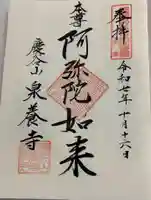 奉拝
令和七年十月十六日
本尊
阿弥陀如来
慶谷山
泉養寺